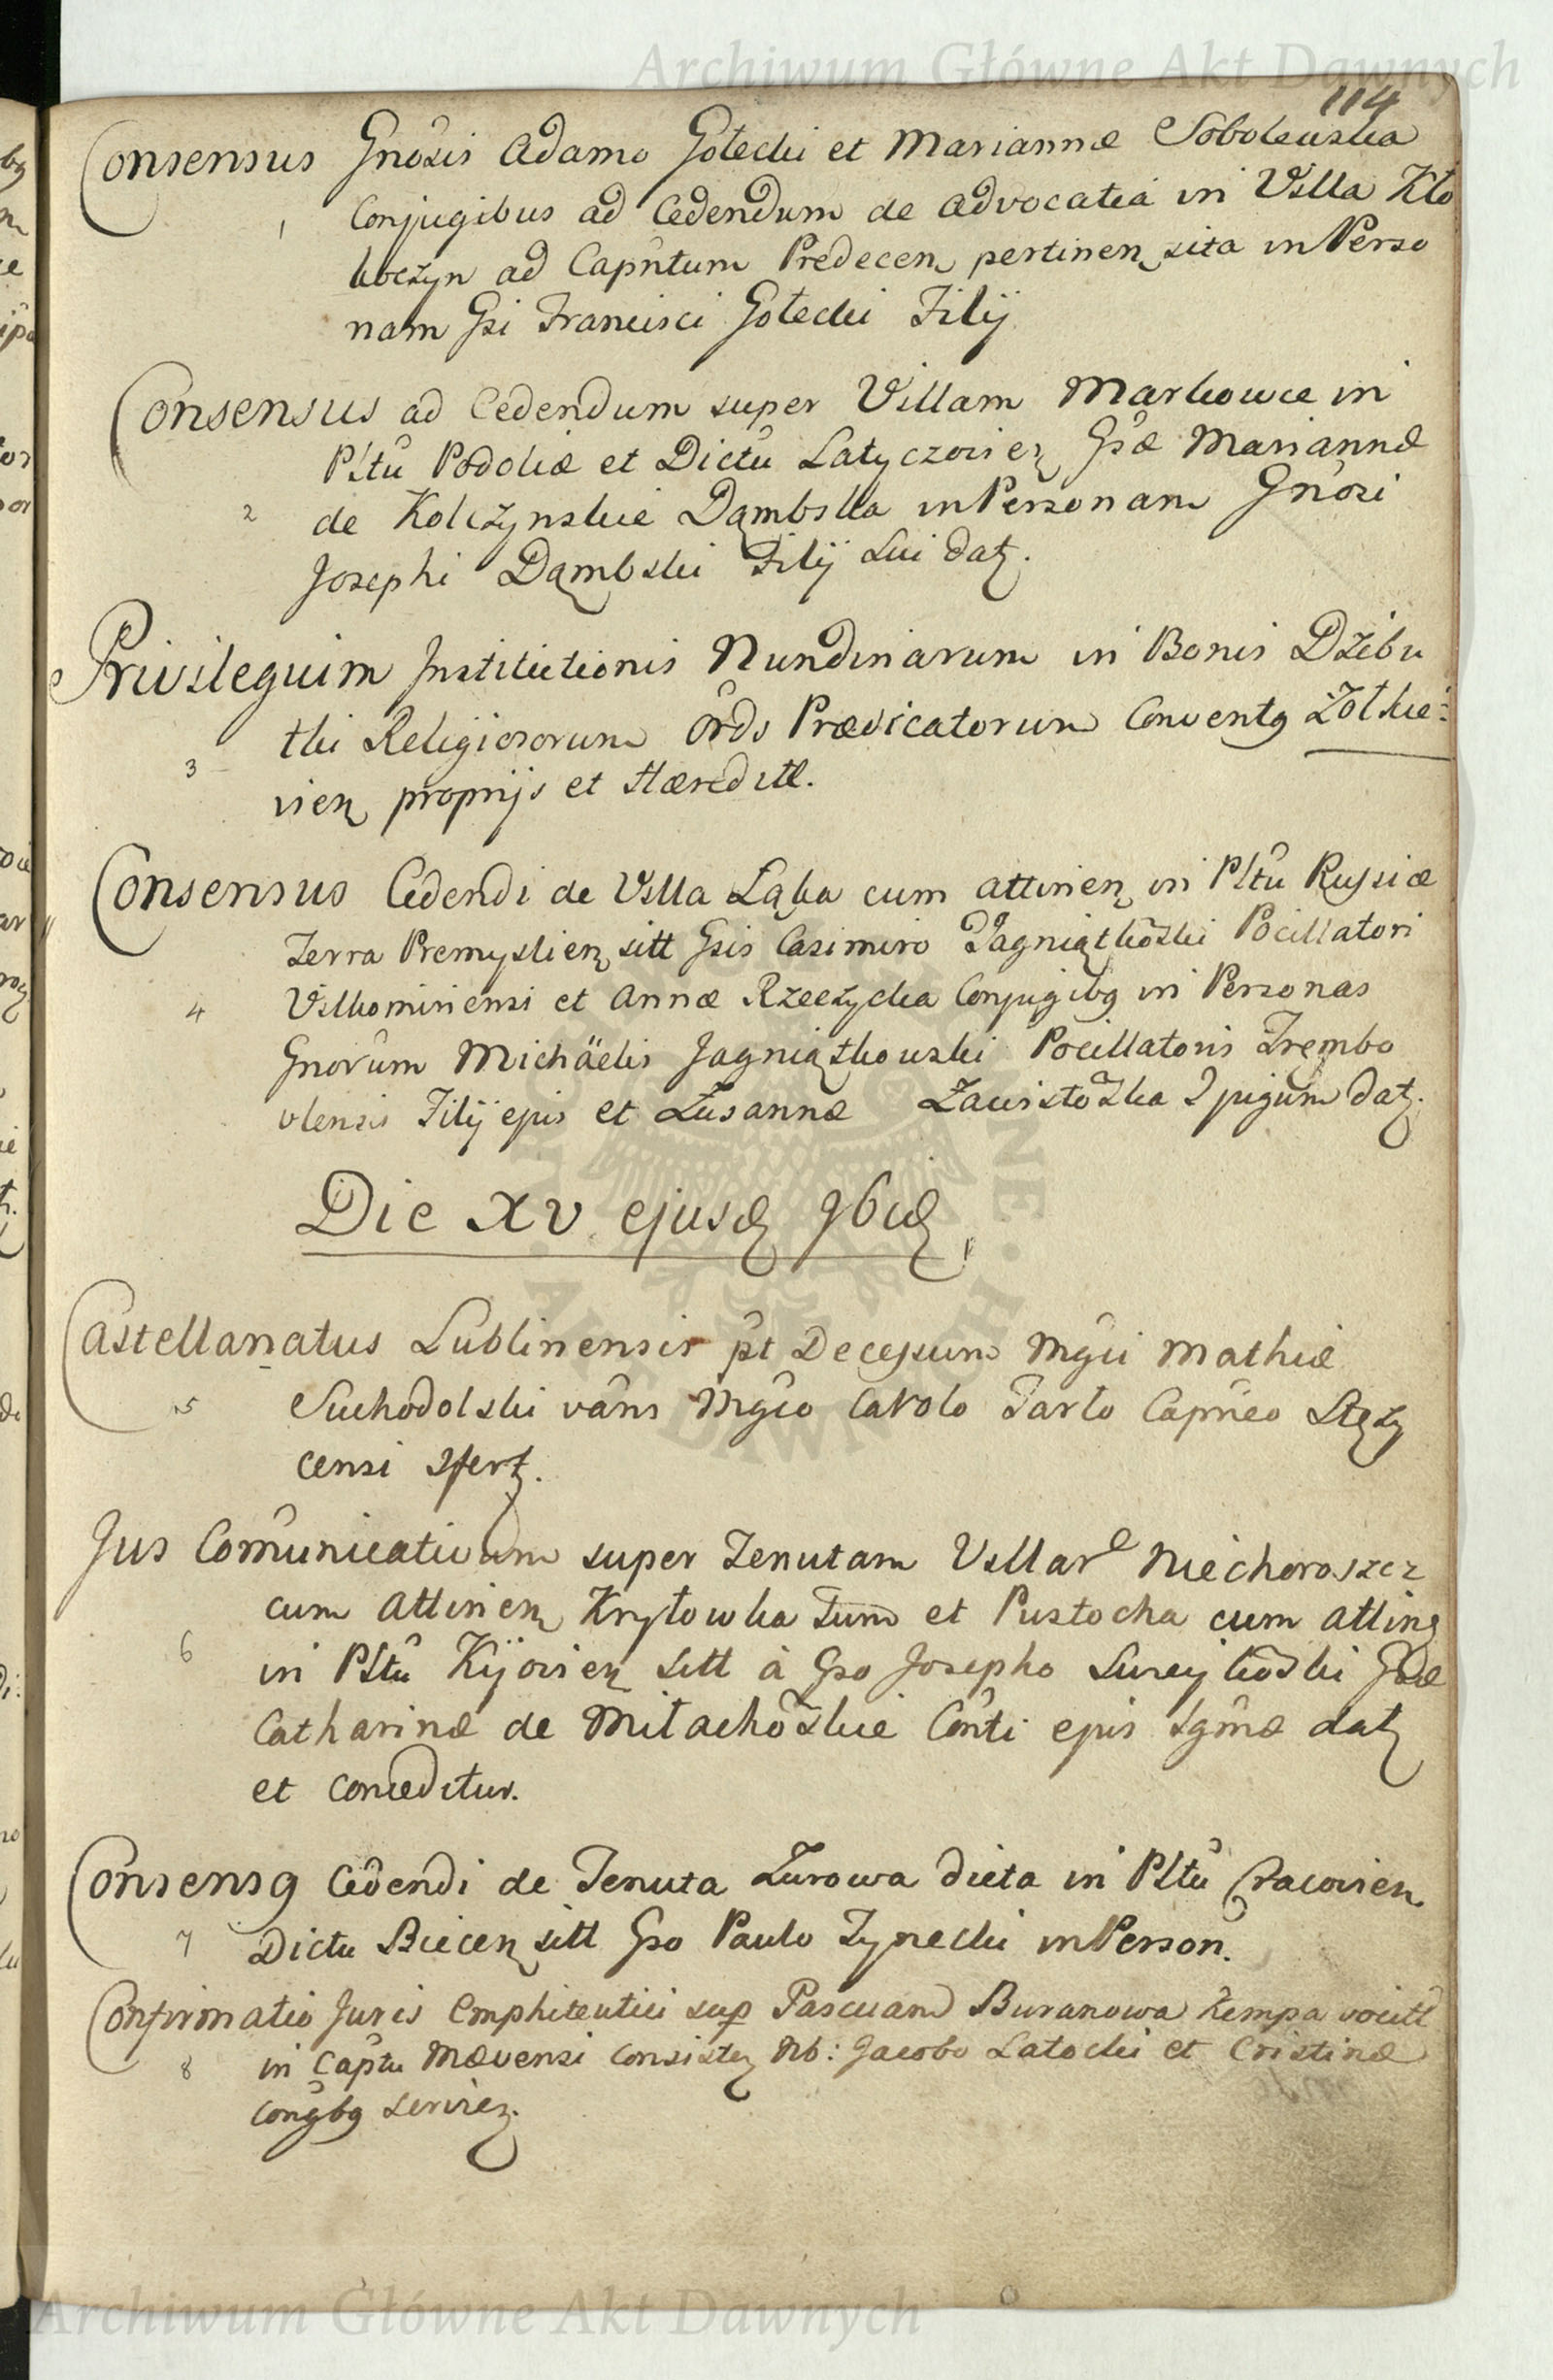 Archiwum Główne Akt Dawnych
114
Consensus Gnosis Adamo Gołecki et Mariannæ Sobolewska
1 Conjugibus ad Cedendum de Advocatia in Villa Kło
boczyn ad Capntum Predecen pertinen sita in Perso
nam Gsi Francisci Gołecki Filij
Consensus ad Cedendum super Villam Markowce in
Pltu Podoliæ et Dictu Latyczovien Gsæ Mariannæ
2 de Kolczynskie Dąmbska in Personam Gnosi
Josephi Dąmbski Filij Sui dat.
Privilegium Institutionis Nundinarum in Bonis Dzibu
łki Religiosorum Ords Prædicatorum Conventq Zołkie:
3 vien proprijs et Hæreditt.
Consensus Cedendi de Villa Łąka cum attinen in Pltu Russiæ
Terra Premyslien sitt Gsis Casimiro Jagniątkoski Pocillatori
4 Vilkominiensi et Annæ Rzeczycka Conjugibq in Personas
Gnorum Michäelis Jagniątkowski Pocillatoris Trembo
vlensis Filij ejus et Zusannæ Zawistoska Cjugum dat.
Die XV ejusd 9bid
Castellanatus Lublinensis pt Decessum Mgci Mathiæ
5 Suchodolski vans Mgco Carolo Tarło Capneo Stęży
censi Cfert.
Jus Comunicativum super Tenutam Villar Niechoroszcz
cum Attinen Kryłowka Tum et Pustocha cum Attinq
6 in Pltu Kijovien sitt à Gso Josepho Sureykoski Gsæ
Catharinæ de Mitachoskie Conti ejus Lgmæ dat
et conceditur.
Consensq Cedendi de Tenuta Zurowa dicta in Pltu Cracovien
7 Dictu Biecen sitt Gso Paulo Zynecki in Person.
Confirmatio Juris Emphiteutici sup Pascuam Buranowa Kempa vocitt
8 in Captu Mævensi Consisten Nb: Jacobo Latocki et Cristinæ
congbq servien.
Archiwum Główne Akt Dawnych